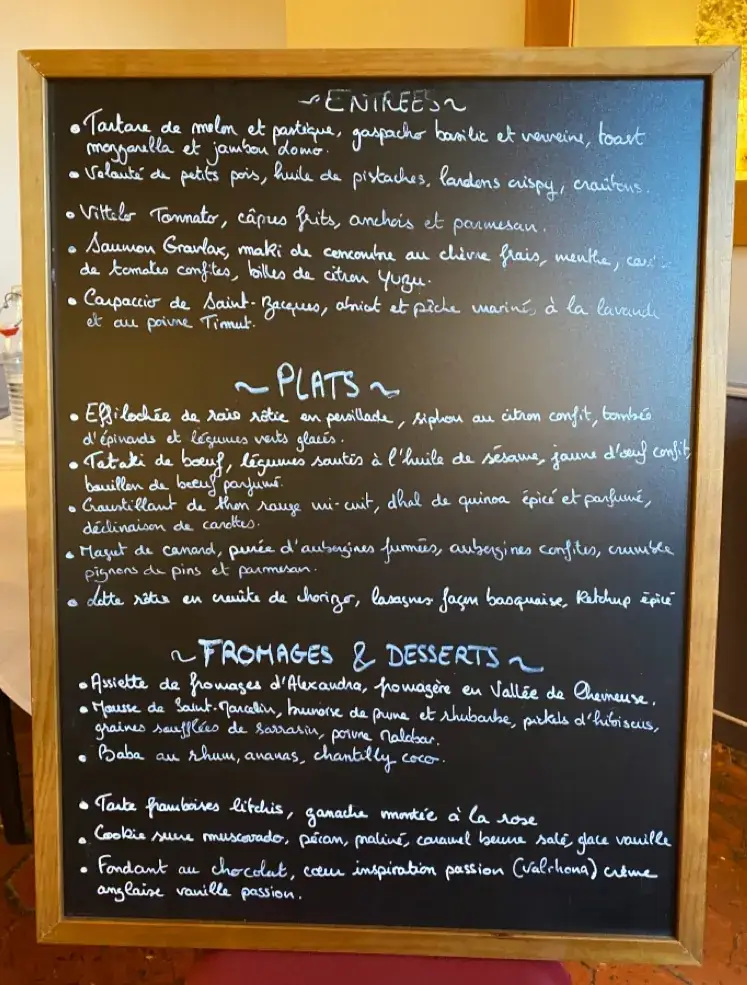 ~ENTREES~
• Tartare de melon et pastèque, gaspacho basilic et verveine, toast
mozzarella et jambon domo.
• Velouté de petits pois, huile de pistaches, lardons crispy, croûtons.
• Vittelo Tonnato, câpres frits, anchois et parmesan.
• Saumon Gravlax, maki de concombre au chèvre frais, menthe,
de tomates confites, billes de citron Yuzu.
• Carpaccio de Saint-Jacques, abricot et pêche marinés à la lavande
et au poivre Timut.
~ PLATS ~
• Effilochée de raie rôtie en persillade, siphon au citron confit, tombée
d'épinards et légumes verts glacés.
• Tataki de boeuf, légumes sautés à l'huile de sésame, jaune d'oeuf confit,
bouillon de boeuf parfumé.
• Croustillant de thon rouge mi-cuit, dhal de quinoa épicé et parfumé,
déclinaison de carottes.
• Magret de canard, purée d'aubergines fumées, aubergines confites, crumble
pignons de pins et parmesan.
• Lotte rôtie en croûte de chorizo, lasagnes façon basquaise, Ketchup épicé
~ FROMAGES & DESSERTS ~
• Assiette de fromages d'Alexandra, fromagère en Vallée de Chevreuse.
• Mousse de Saint-Marcelin, brunoise de prune et rhubarbe, pickels d'hibiscus,
graines soufflées de sarrasin, poivre Malabar.
• Baba au rhum, ananas, chantilly coco.
• Tarte framboises litchis, ganache montée à la rose
• Cookie sucre muscovado, pécan, praliné, caramel beurre salé, glace vanille
• Fondant au chocolat, coeur inspiration passion (Valrhona) crème
anglaise vanille passion.